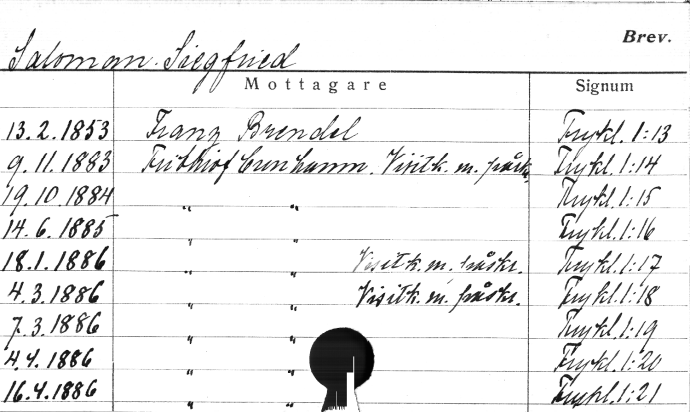 Brev.
Saloman. Siegfried
Mottagare Signum
13.2.1853 Franz Brendel Frykl. 1:13
9.11.1883 Frithiof Cronhamn. Visitk. m. påskr. Frykl. 1:14
19.10.1884 " " Frykl. 1:15
14.6.1885 " " Frykl. 1:16
18.1.1886 " " Visitk. m. påskr. Frykl. 1:17
4.3.1886 " " Visitk. m. påskr. Frykl. 1:18
7.3.1886 " " Frykl. 1:19
4.4.1886 " " Frykl. 1:20
16.4.1886 " " Frykl. 1:21